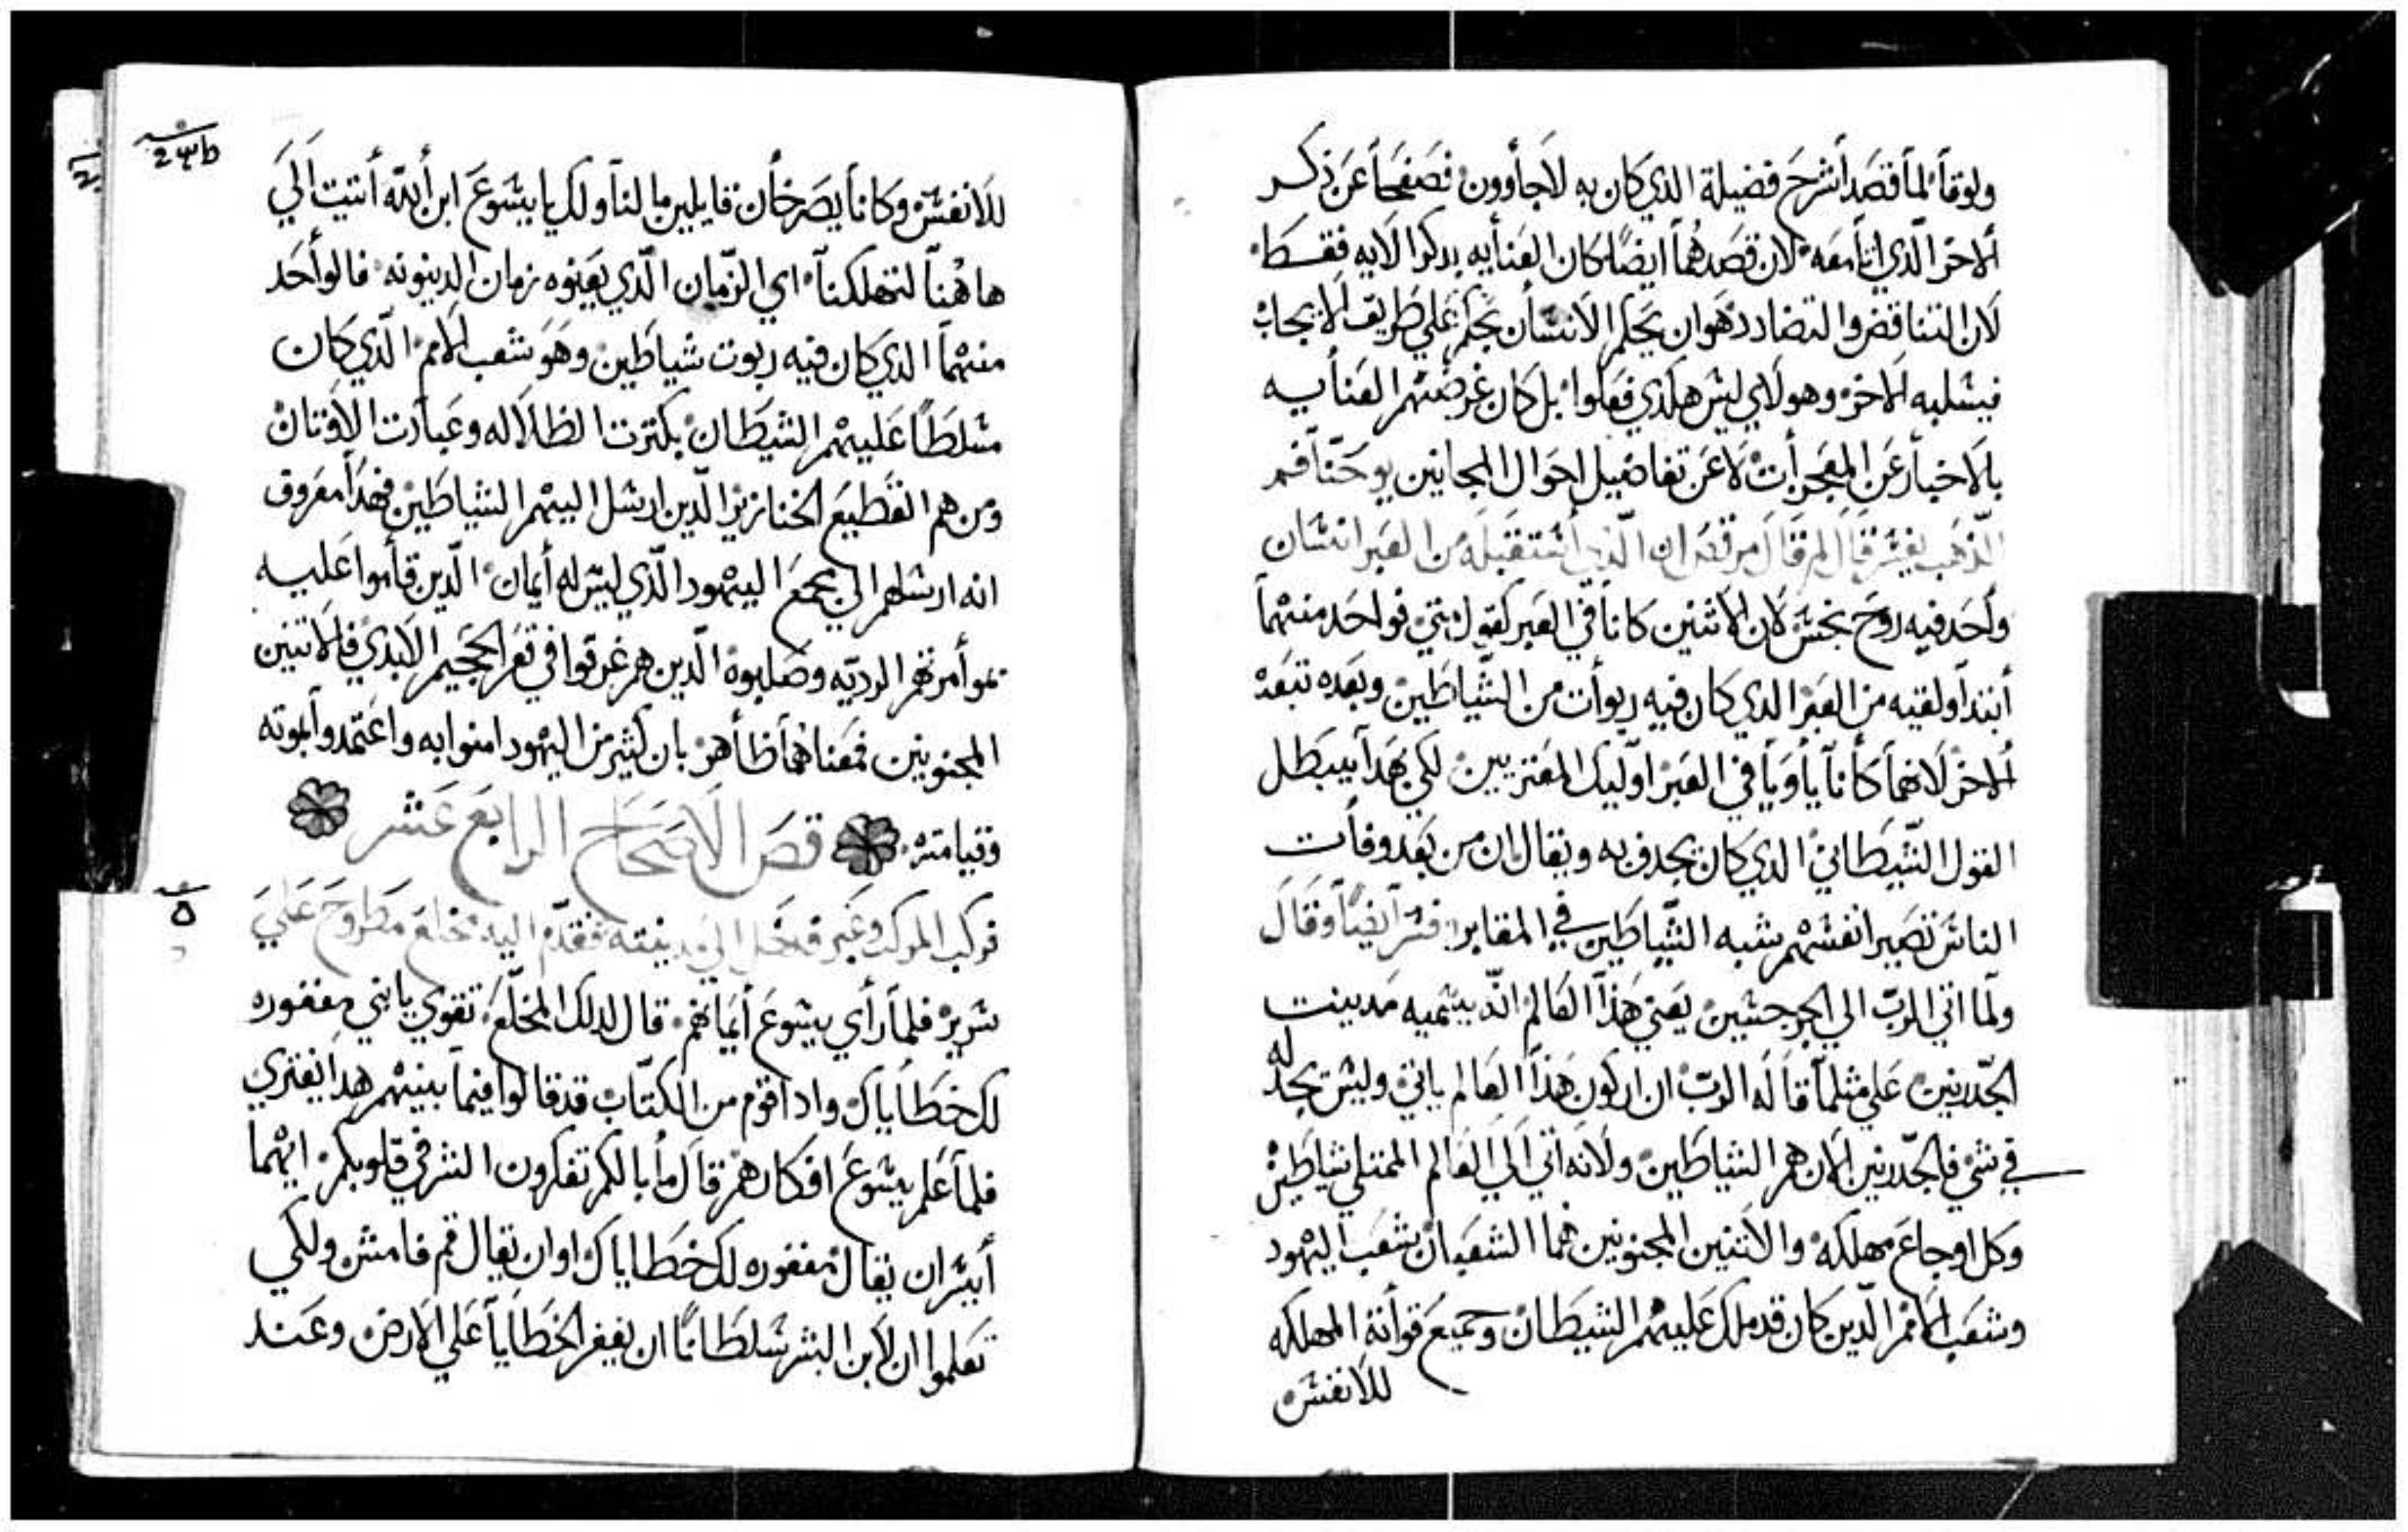 ولوقا لما قصد أشرح فضيلة الذي كان به لاجاوون فصفحا عن ذكر
ألاخر الذي اتا معه لان قصدهما ايضا كان العنايه بدكرا لايه فقط
لان التناقض والتضادد هوان يحكم الانسان بحكم علي طريق الايجاب
فيسلبه الاخر وهولاي ليس هكذي فعلوا بل كان غرضهم العنايه
بالاخبار عن المعجزات لا عن تفاضيل احوال المجانين يوحنا فم
الذهب يفسر قال ان الذي أستقبله من القبر انسان
واحد فيه روح نجس لان الاثنين كانا في القبر كقول متي فواحد منهما
أبتدا ولقيه من القبر الدي كان فيه ربوات من الشياطين وبعده تبعه
ألاخر لانهما كانا ياويا في القبر اوليك المعتريين لكي بهدا يبطل
القول الشيطاني الدي كان يجدف به ويقال ان من بعد وفات
الناس تصير انفسهم شبه الشياطين في المقابر فسر أيضا وقال
ولما اتي الرب الي الجرجسين يعني هذا العالم الذ يسميه مدينت
الجدرنين علي مثلما قال الرب ان اركون هذا العالم ياتي وليس يجد له
في شي فالجدرنين الان هم الشياطين ولانه اتي الي العالم الممتلي شياطين
وكل اوجاع مهلكه والاتنين المجنونين هما الشعبان شعب اليهود
وشعب الامم الدين كان قد ملك عليهم الشيطان وجميع قواته المهلكه
للانفس
للانفس وكانا يصرخان قايلين ما لنا ولك يا يشوع ابن الله أتيت الي
هاهنا لتهلكنا اي الزمان الذي يعينوه زمان الدينونه فالواحد
منهما الدي كان فيه ربوت شياطين وهو شعب الامم الذي كان
مسلطا عليهم الشيطان بكترت الظلاله وعبادت الاوتان
ومن هم القطيع الخنازير الدين ارسل اليهم الشياطين فهدا معروف
انه ارسلهم الي مجمع اليهود الذي ليس له أيمان الدين قاموا عليه
بموأمرتهم الرديه وصلبوه الدين هم غرقوا في قعر الجحيم الابدي فالاتنين
المجنونين فمعناهما ظاهر بان كثير من اليهود امنوا به واعتمدوا بموته
وقيامته قص الاصحاح الرابع عشر
فركب المركب وعبر فدخل الي مدينته فقدم اليه مخلع مطروح علي
سرير فلما رأي يشوع أيمانهم قال لدلك المخلع تقوي يا بني مغفوره
لك خطاياك واداقوم من الكتاب قد قالوا فيما بينهم هدا يفتري
فلما علم يشوع افكارهم قال ما بالكم تفكرون الشر في قلوبكم ايهما
أيسر ان يقال مغفوره لك خطاياك اوان يقال قم فامش ولكي
تعلموا ان لابن البشر سلطانا ان يغفر الخطايا علي الارض وعند